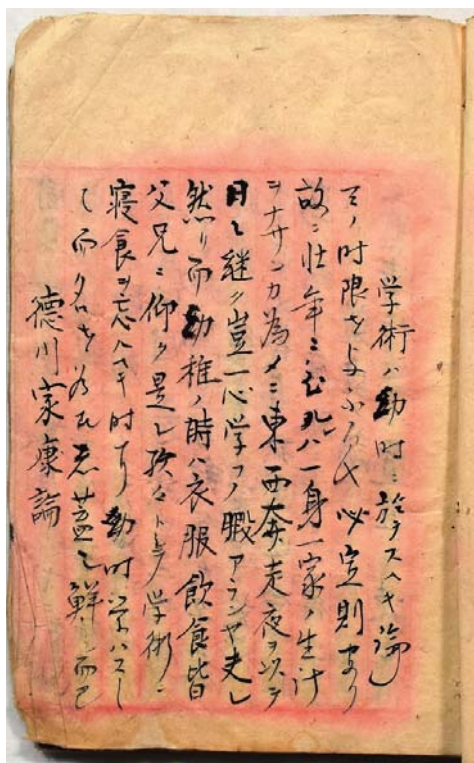 学術ハ幼時ニ於テスヘキ論
ノ時限ヲ 必定則アリ
故ニ壮年ニ 一身一家ノ生計
ヲナサンカ為メニ東西奔走夜ヲ以テ
日ニ継ク豈一心学フノ暇アランヤ夫レ
然リ而幼稚ノ時ハ衣服飲食皆
父兄ニ仰ク是レ孜々トシテ学術ニ
寝食ヲ忘ルヘキ時ナリ幼時学ハスシ
テ而ノ名ヲ 蓋シ鮮シ而已
德川家康論